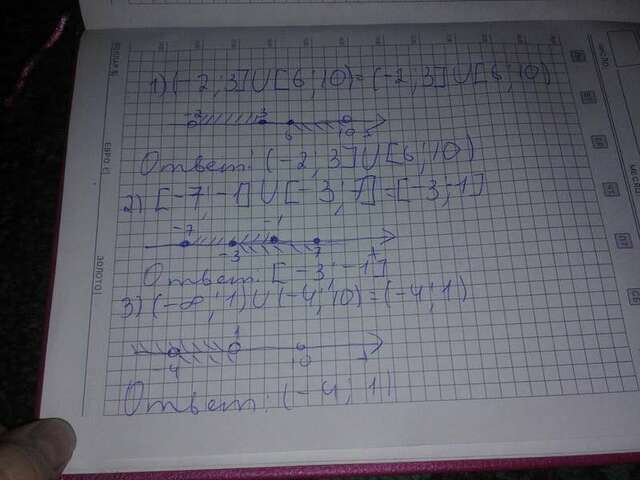 1) (-2; 3] U [6; 10) = (-2; 3] U [6; 10)
-2 3 6 10
Ответ: (-2; 3] U [6; 10)
2) [-7; -1] U [-3; 7] = [-3; -1]
-7 -3 -1 7
Ответ: [-3; -1]
3) (-∞; 1) U (-4; 10) = (-4; 1)
-4 1 10
Ответ: (-4; 1)
ЗОЛОТО
ЕВРО